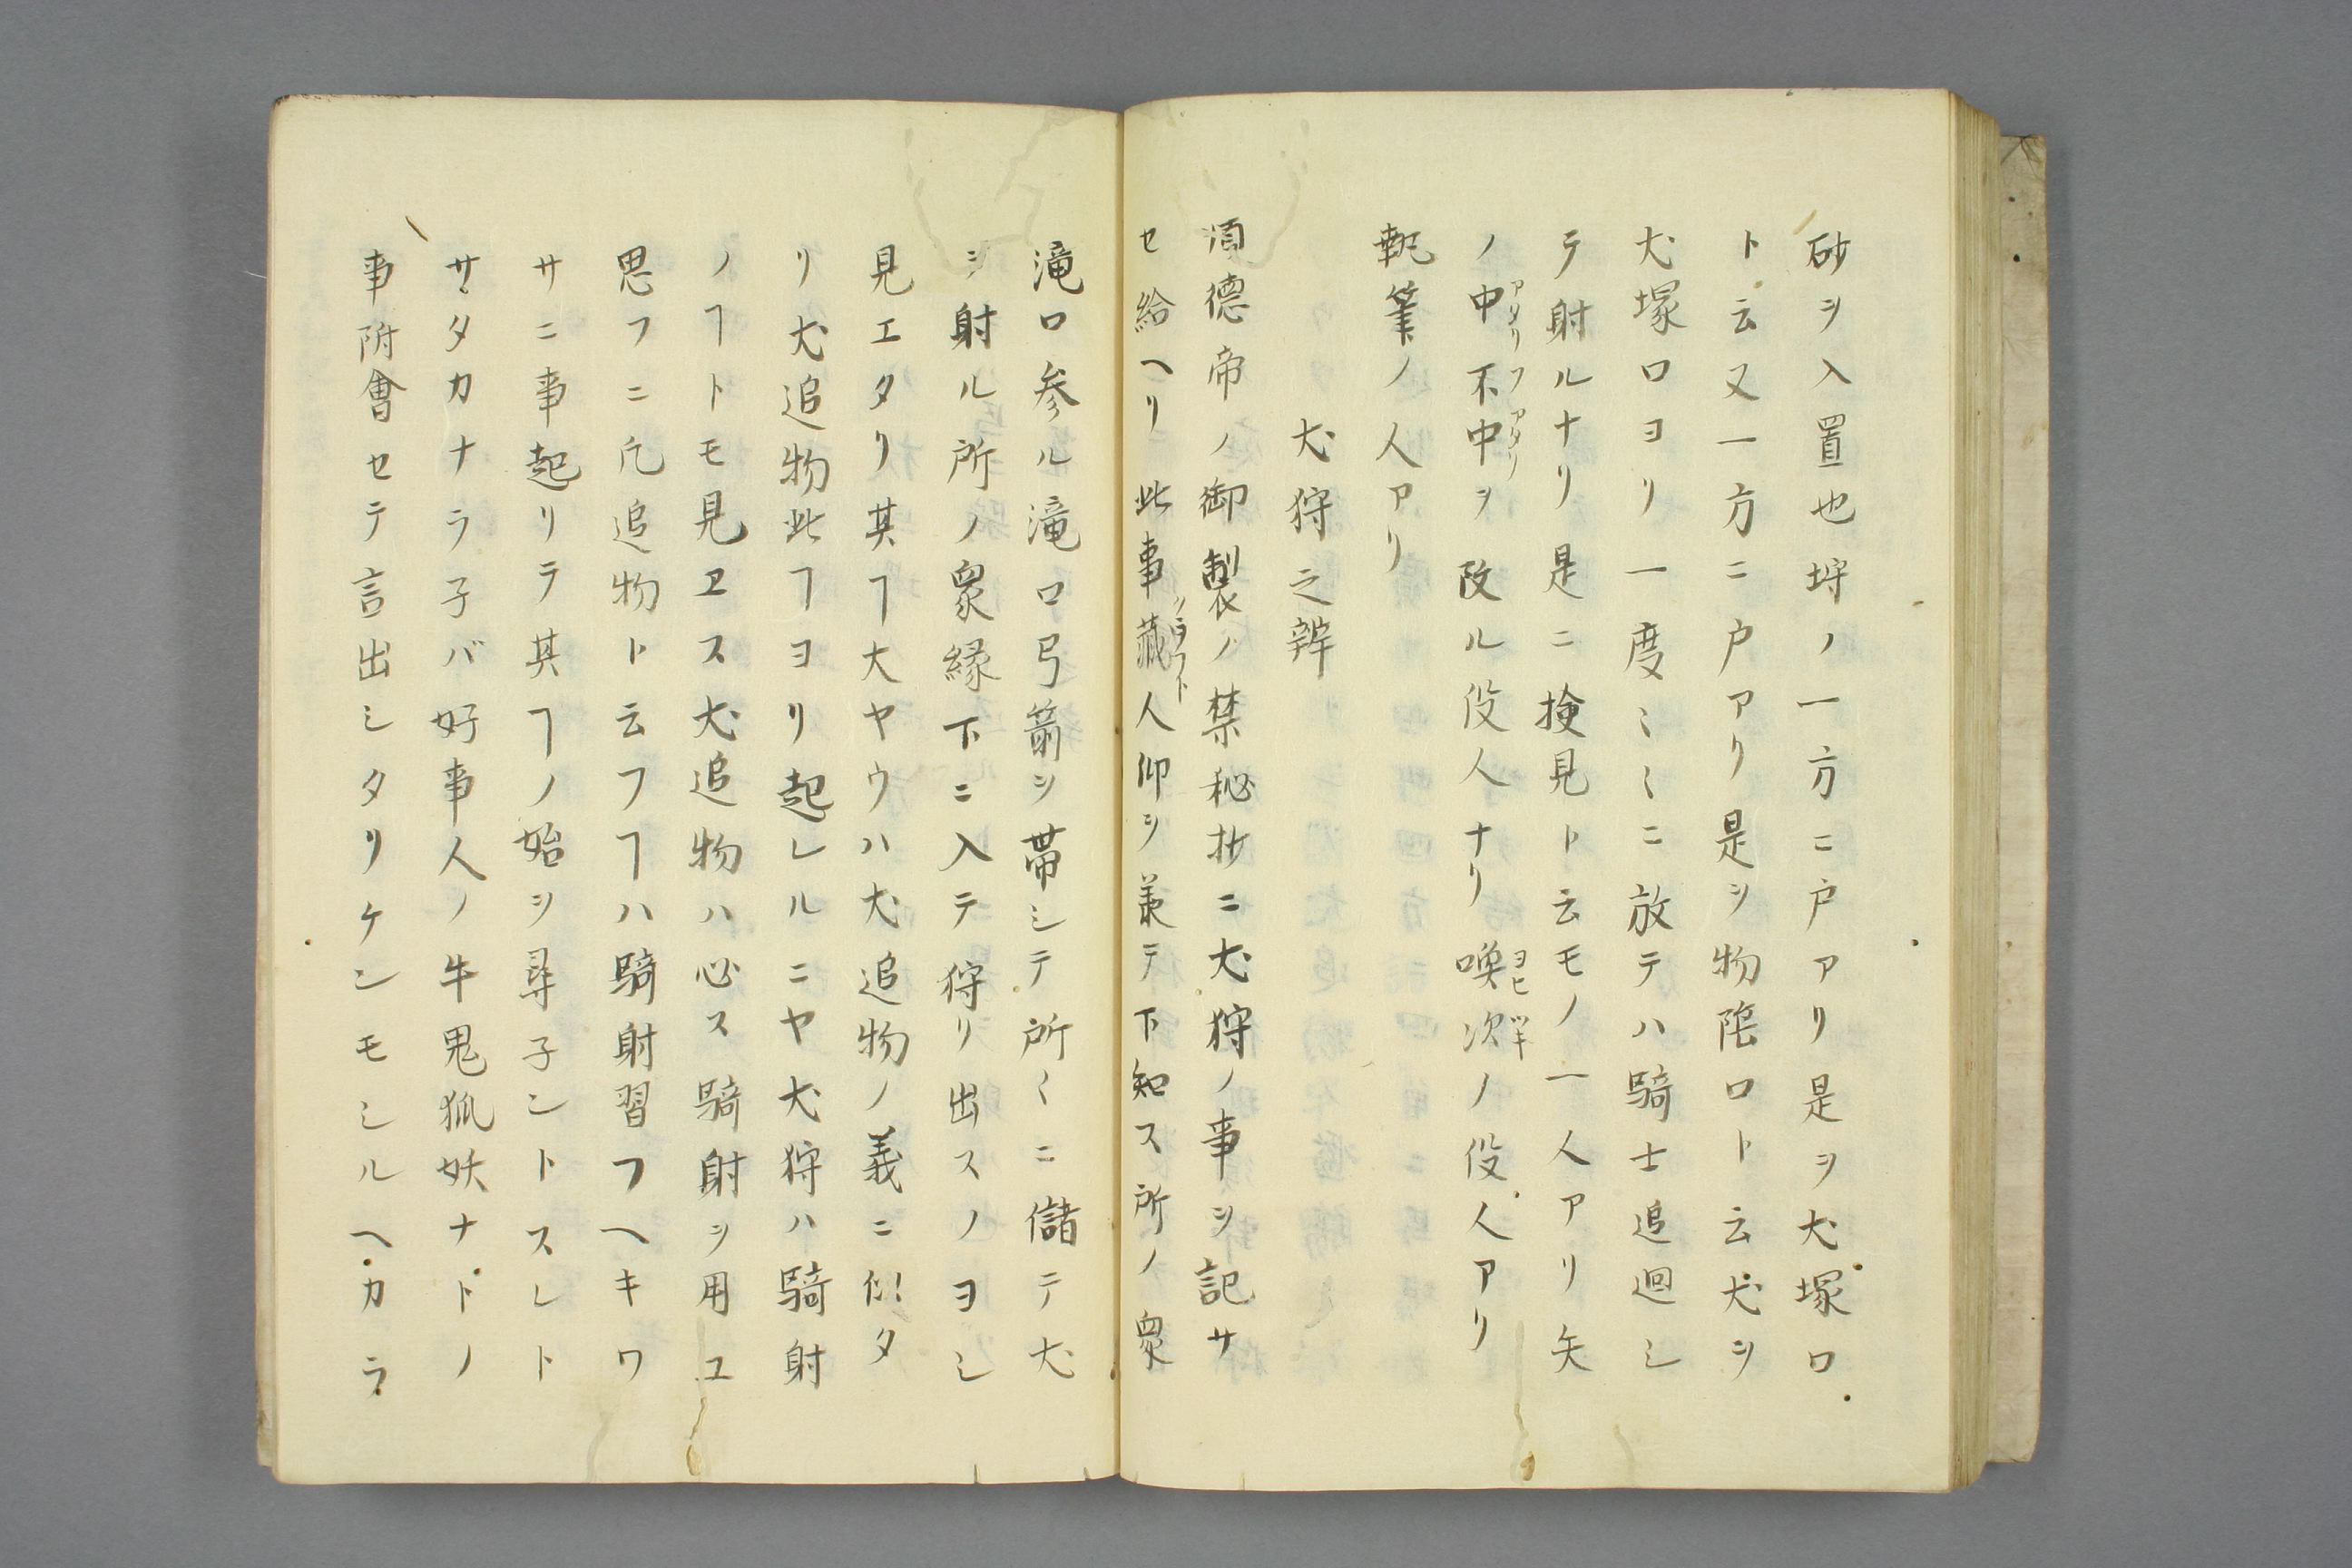 砂ヲ入置也埒ノ一方ニ戸アリ是ヲ犬塚口
ト云又一方ニ戸アリ是ヲ物隠口ト云犬ヲ
犬塚口ヨリ一度〻〻ニ放テハ騎士追廻シ
テ射ルナリ是ニ検見ト云モノ一人アリ矢
ノ中不中ヲ改ル役人ナリ喚次ノ役人アリ
アタリフアタリ
ヨヒツギ
執筆ノ人アリ
犬狩之辨
順徳帝ノ御製ノ禁秘抄ニ犬狩ノ事ヲ記サ
セ給ヘリ此事蔵人仰ヲ承テ下知ス所ノ衆
クラフト
滝口参ル滝口弓箭ヲ帯シテ所〻ニ儲テ犬
ヲ射ル所ノ衆縁下ニ入テ狩リ出スノヨシ
見エタリ其ヿ大ヤウハ犬追物ノ義ニ似タ
リ犬追物此ヿヨリ起レルニヤ犬狩ハ騎射
ノヿトモ見ヱス犬追物ハ必ス騎射ヲ用ユ
思フニ凡追物ト云フヿハ騎射習フヘキワ
サニ事起リテ其ヿノ始ヲ尋子ントスレト
サタカナラ子バ好事人ノ牛鬼狐妖ナドノ
事附會セテ言出シタリケンモシルヘカラ